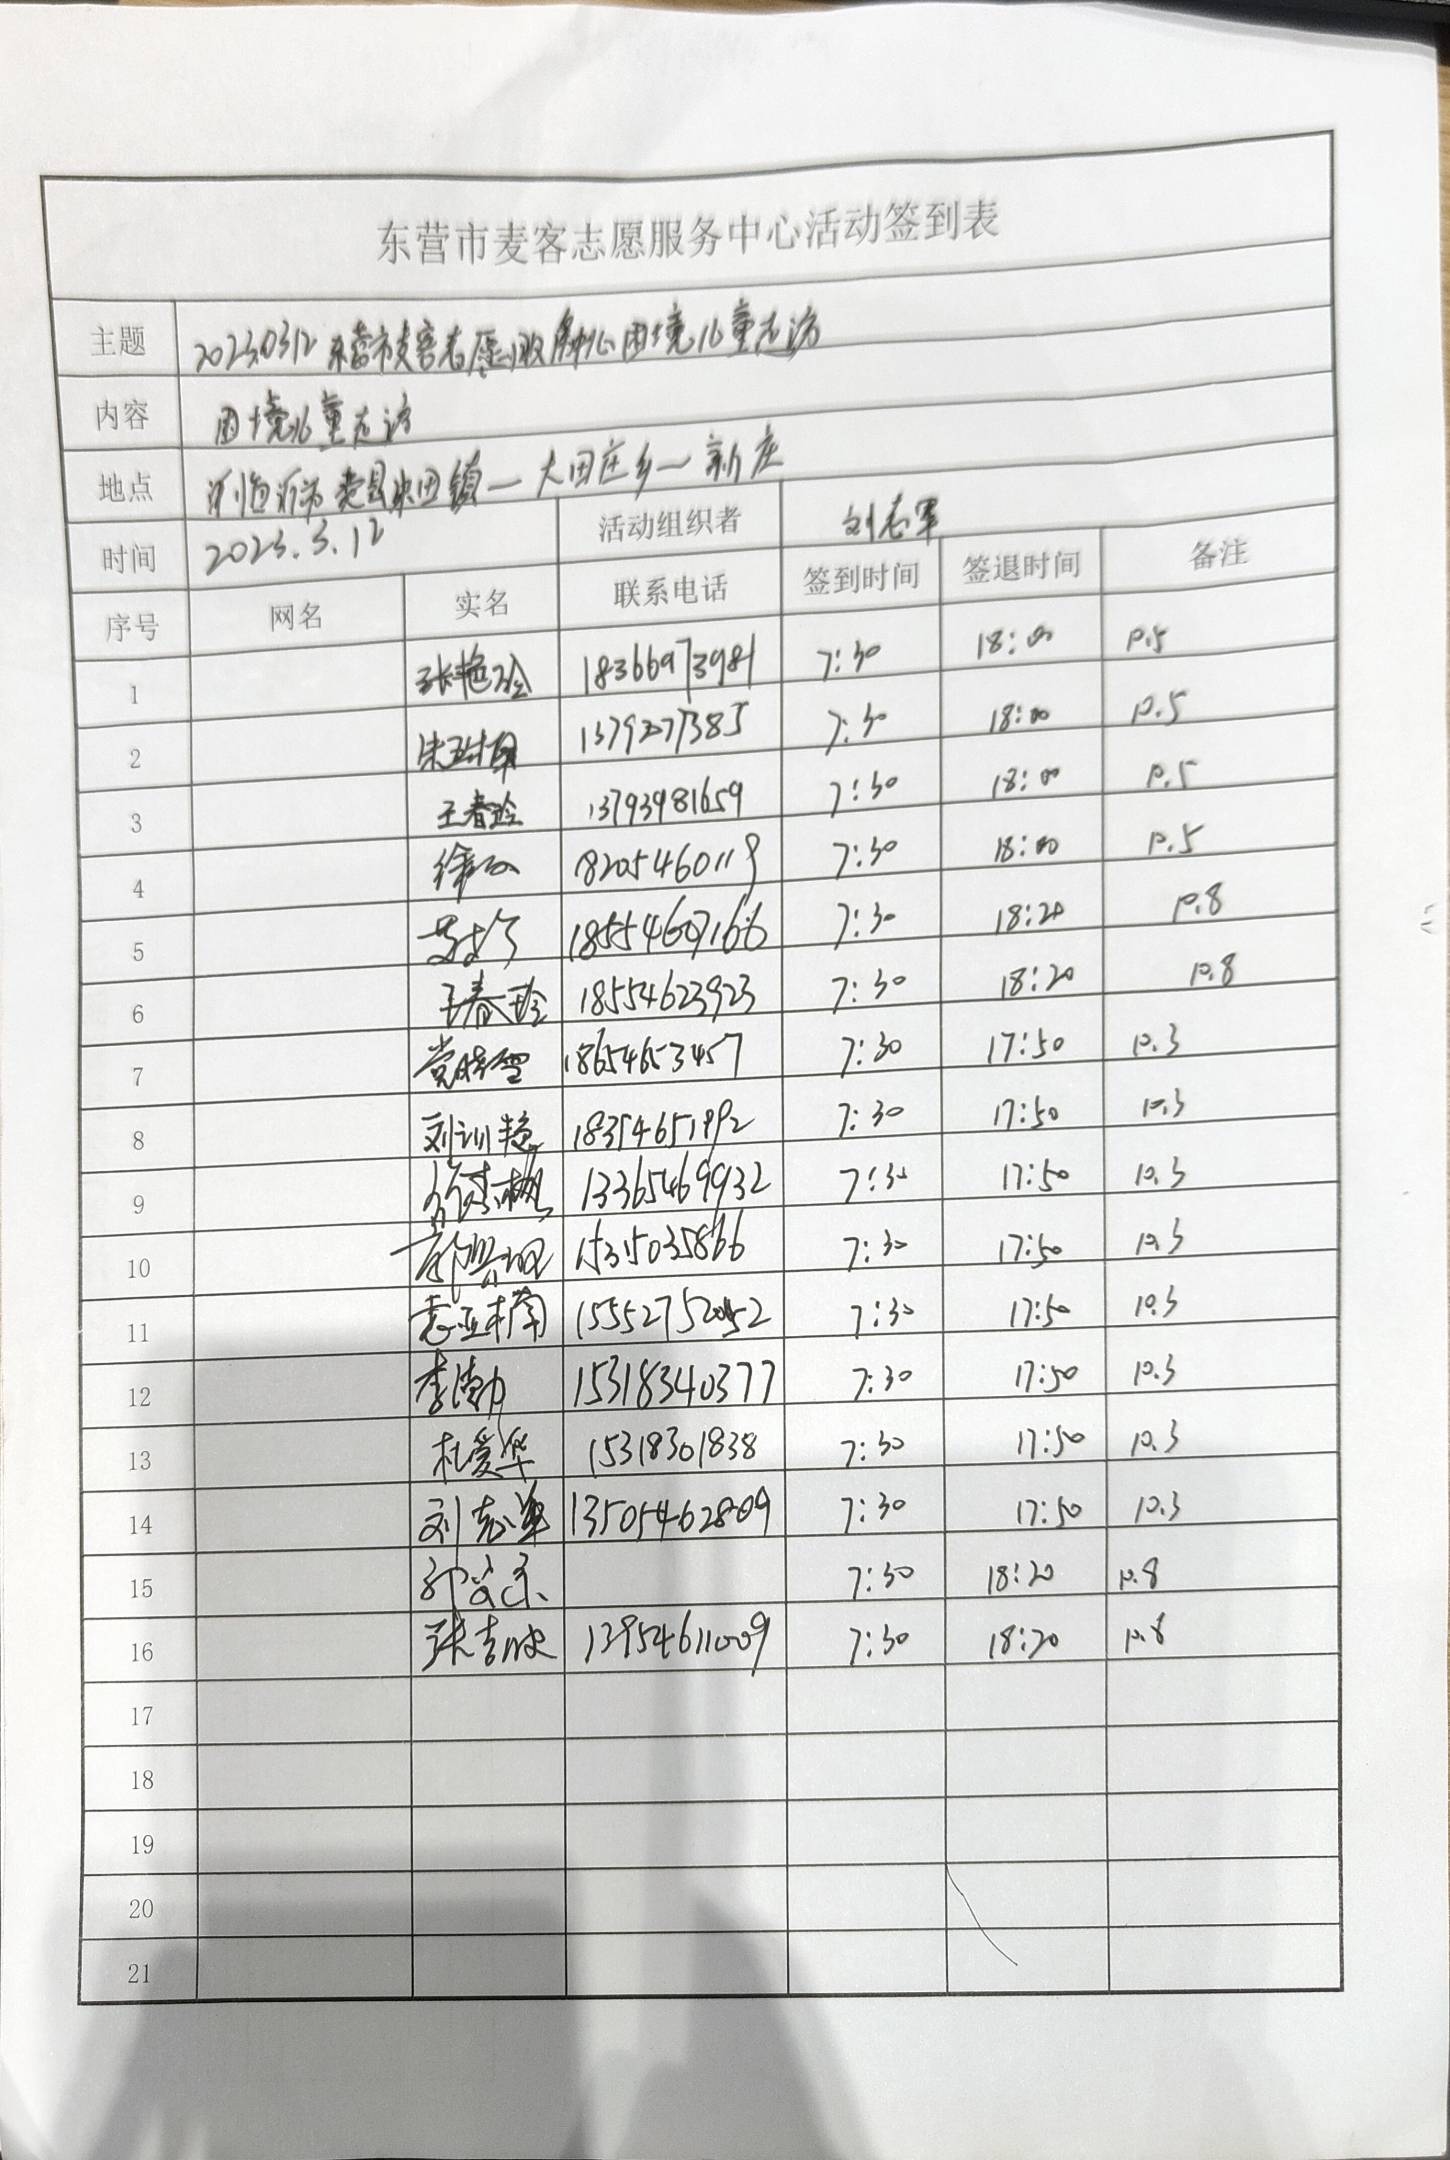 东营市麦客志愿服务中心活动签到表
主题 20230312东营市麦客志愿服务中心困境儿童走访
内容 困境儿童走访
地点 临沂市费县 田镇—大田庄乡—新庄
时间 2023.3.12 活动组织者 刘志军
序号 网名 实名 联系电话 签到时间 签退时间 备注
1 张艳玲 18366973981 7:30 18:00 10.5
2 7:30 18:00 10.5
3 王春玲 13793981659 7:30 18:00 10.5
4 18205460119 7:30 18:00 10.5
5 18554607166 7:30 18:20 10.8
6 王春玲 18554623923 7:30 18:20 10.8
7 党晓雪 18654653457 7:30 17:50 10.3
8 刘训艳 18354651892 7:30 17:50 10.3
9 13365469932 7:30 17:50 10.3
10 15315035866 7:30 17:50 10.3
11 袁亚楠 15552752052 7:30 17:50 10.3
12 李渤 15318340377 7:30 17:50 10.3
13 杜爱华 15318301838 7:30 17:50 10.3
14 刘志军 13505462809 7:30 17:50 10.3
15 7:30 18:20 10.8
16 13954611009 7:30 18:20 10.8
17
18
19
20
21